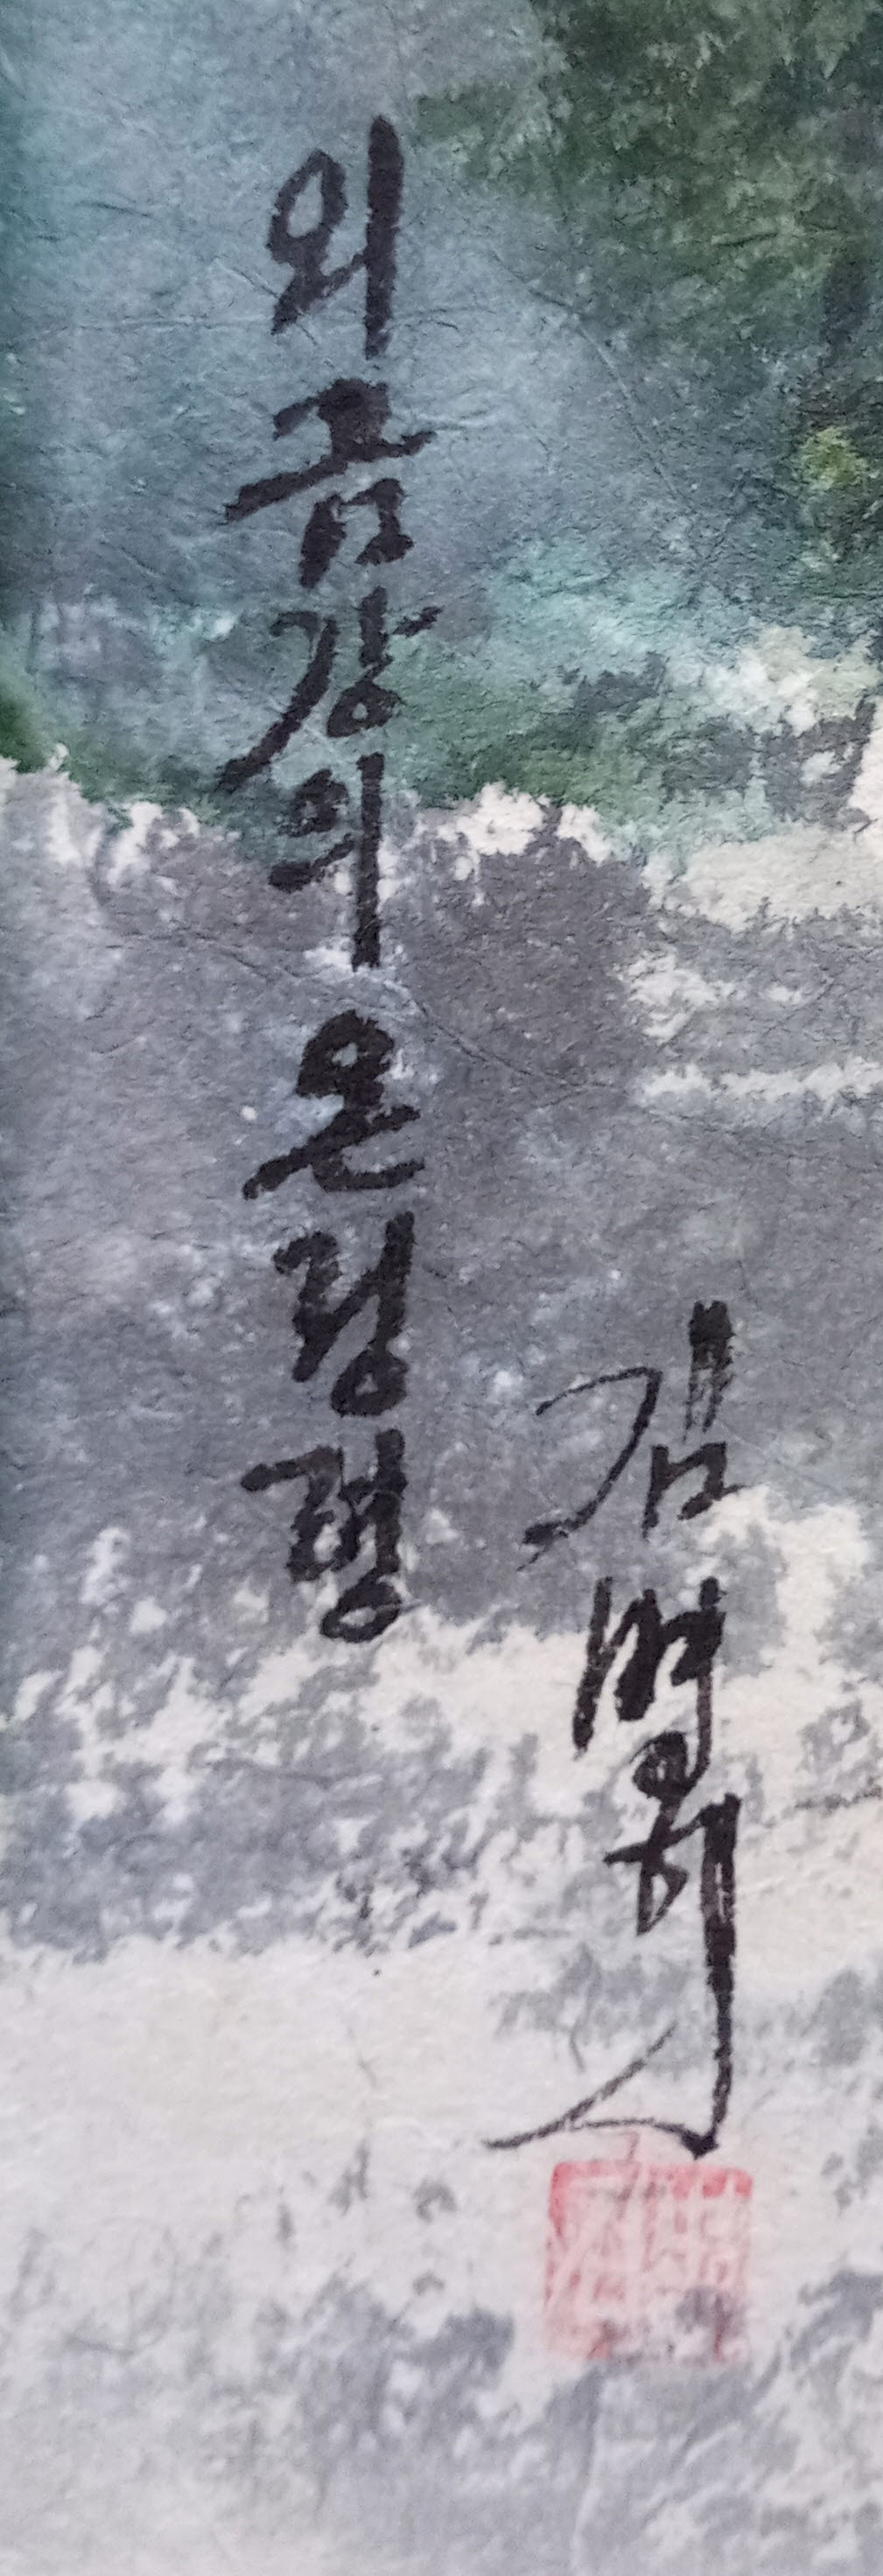 외금강의 온정령
김명휘